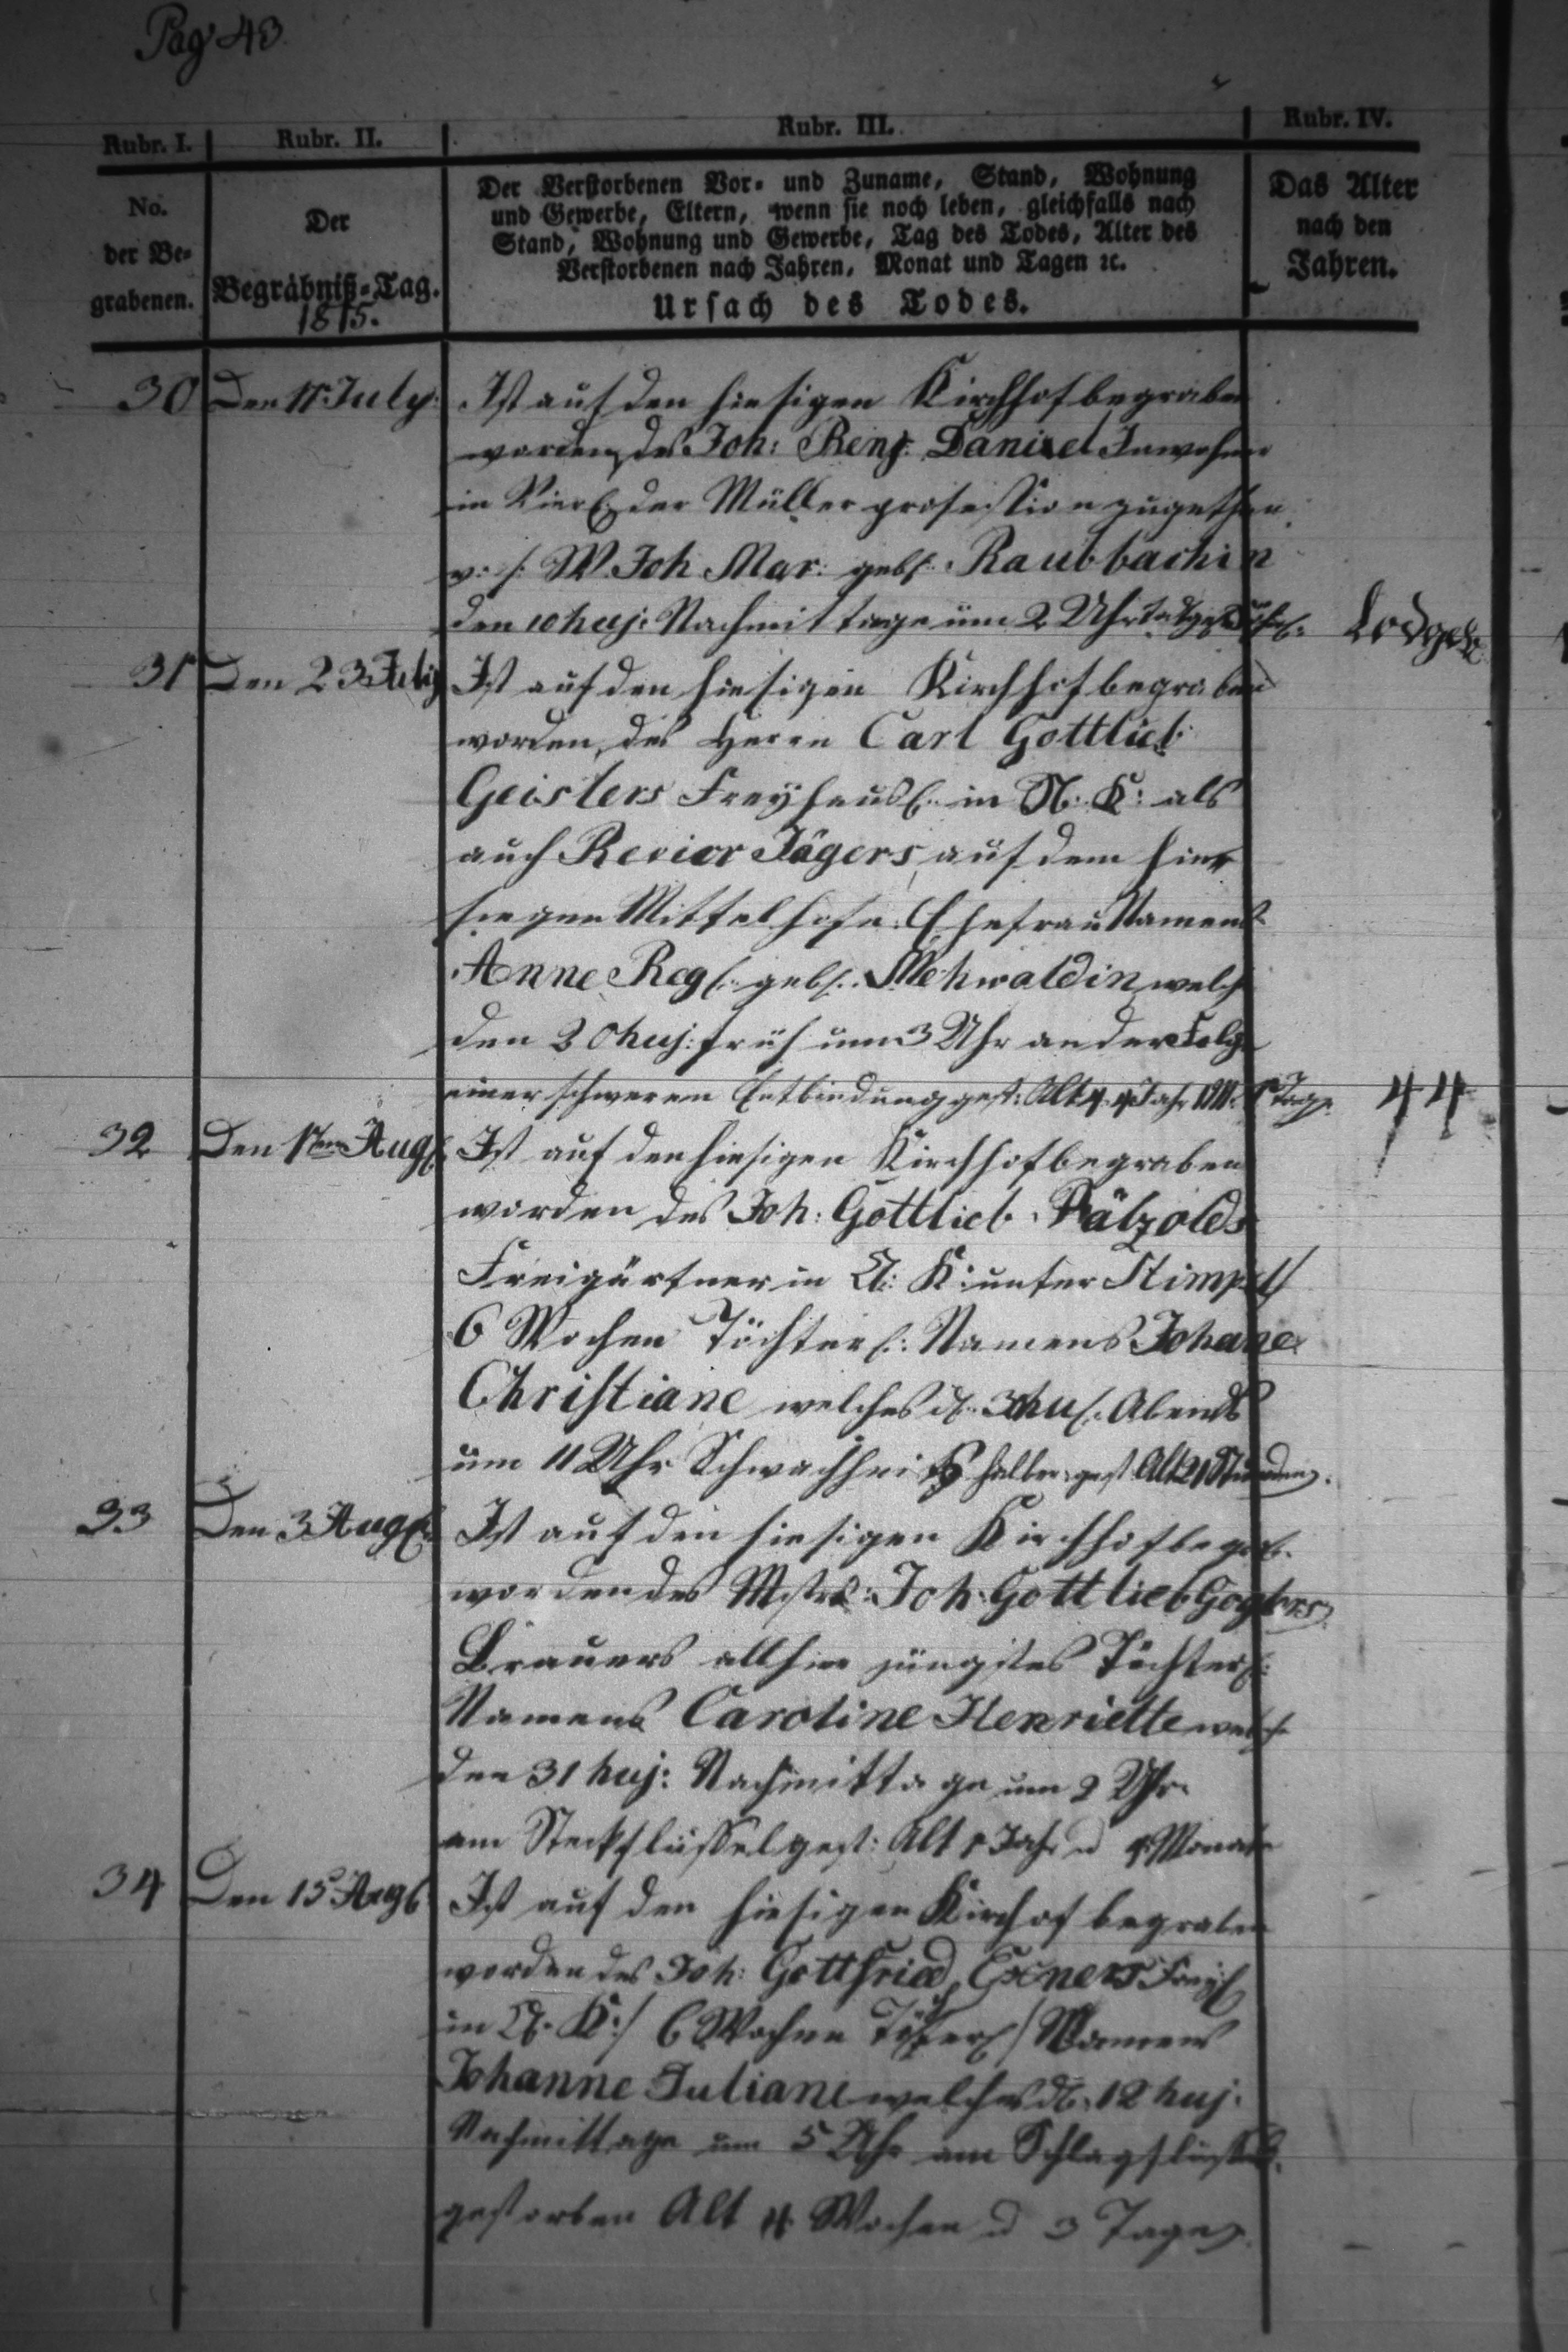 Pag 43
Rubr. I. Rubr. II. Rubr. III. Rubr. IV.
No. der Be-grabenen.
Der Begräbniß-Tag. 1815.
Der Verstorbenen Vor- und Zuname, Stand, Wohnung
und Gewerbe, Eltern, wenn sie noch leben, gleichfalls nach
Stand, Wohnung und Gewerbe, Tag des Todes, Alter des
Verstorbenen nach Jahren, Monat und Tagen ꝛc.
Ursach des Todes.
Das Alter
nach den
Jahren.
30 Den 11 July Ist auf den hiesigen Kirchhof begraben
worden, des Joh: Benj: Daniel Inwohner
in der Müller profession zugethan
W. Joh Mar: geb: Raubbachin
den 10 huj: Nachmittage um 2 Uhr
31 Den 23 July Ist auf den hiesigen Kirchhof begraben
worden, des Herrn Carl Gottlieb
Geislers Freyhausl: in N: K: als
auch Revier Jägers, auf dem hie-
sigen Mittelhofe. Ehefrau Namens
Anne Reg: geb: Mehwaldin, welche
den 20 huj: früh um 3 Uhr an der Folge
einer schweren Entbindung gest: Alt Jahr Tage 44
32 Den 1ten Aug: Ist auf den hiesigen Kirchhof begraben
worden des Joh: Gottlieb Pätzolds
Freigärtner in K:
6 Wochen Töchterl: Namens Johane
Christiane welches d: Abends
um 11 Uhr Schwachheits halber gest Alt 21 Stunden.
33 Den 3 Aug: Ist auf den hiesigen Kirchhof begr:
worden des Mstrs: Joh: Gottlieb Goglers
Brauers allhier jüngstes Töchterl:
Namens Caroline Henriette welche
den 31 huj: Nachmittage um 2 Uhr
am Steckflussel gest: Alt 1 Jahr u 4 Monate
34 Den 15 Aug: Ist auf den hiesigen Kirchof begraben
worden des Joh: Gottfried Exners Freyh
in K:/ 6 Wochen Töchterl/ Namens
Johanne Juliane welches d: 12 huj:
Nachmittage um 5 Uhr am Schlagflussel
gestorben Alt 4 Wochen u 3 Tage.